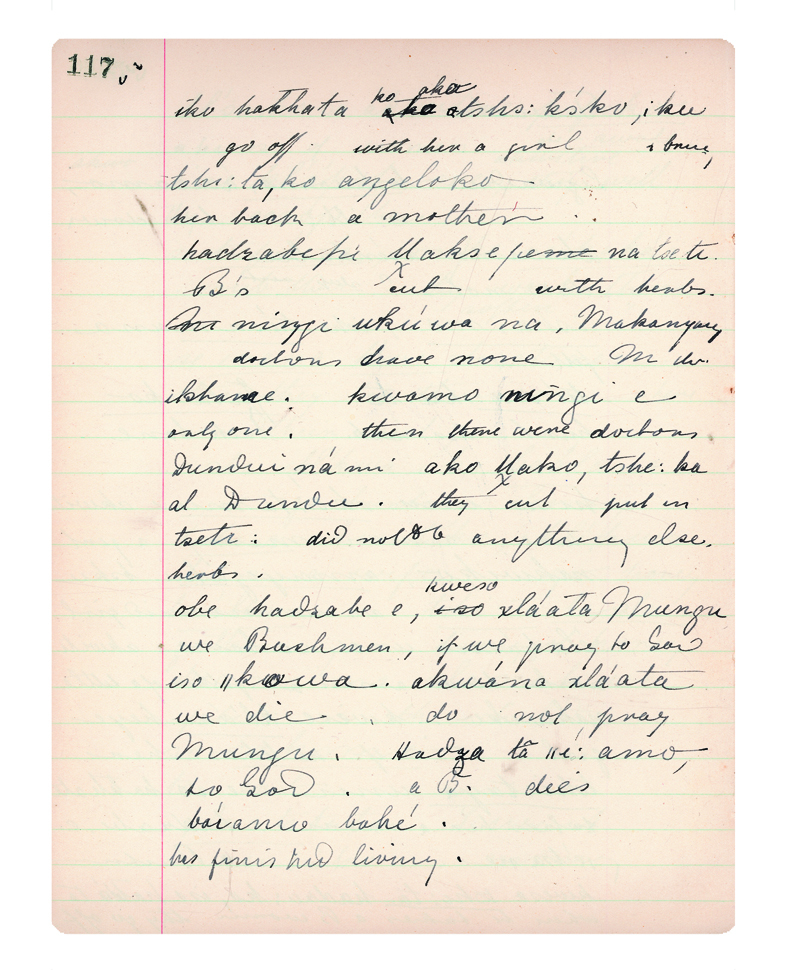 117
ko aka
iko hakhata tshs: kɛ́sko, iku
go off. with her a girl i bring
tshi: ta, ko aŋgeloko
her back a mother ..
hadzabepi Maksepeme na tseti.
B's cut with herbs.
niŋgi ukúwa na, Makaŋgaŋg
doctors have none M do
ikhame. kwamo niŋgi e
only one. then there were doctors
Dundui námi ako Mako, tshe: ka
al Dundu. they cut put in
tseti: did not do anything else.
herbs.
kweso
obe hadzabe e, iso xláata Mungu
we Bushmen, if we pray to God
iso ǁkowa. akwána xláata
we die. do not pray
Mungu. Hadza tã ǁé: amo,
to God. a B. dies
bóiamo bahé.
has finished living.